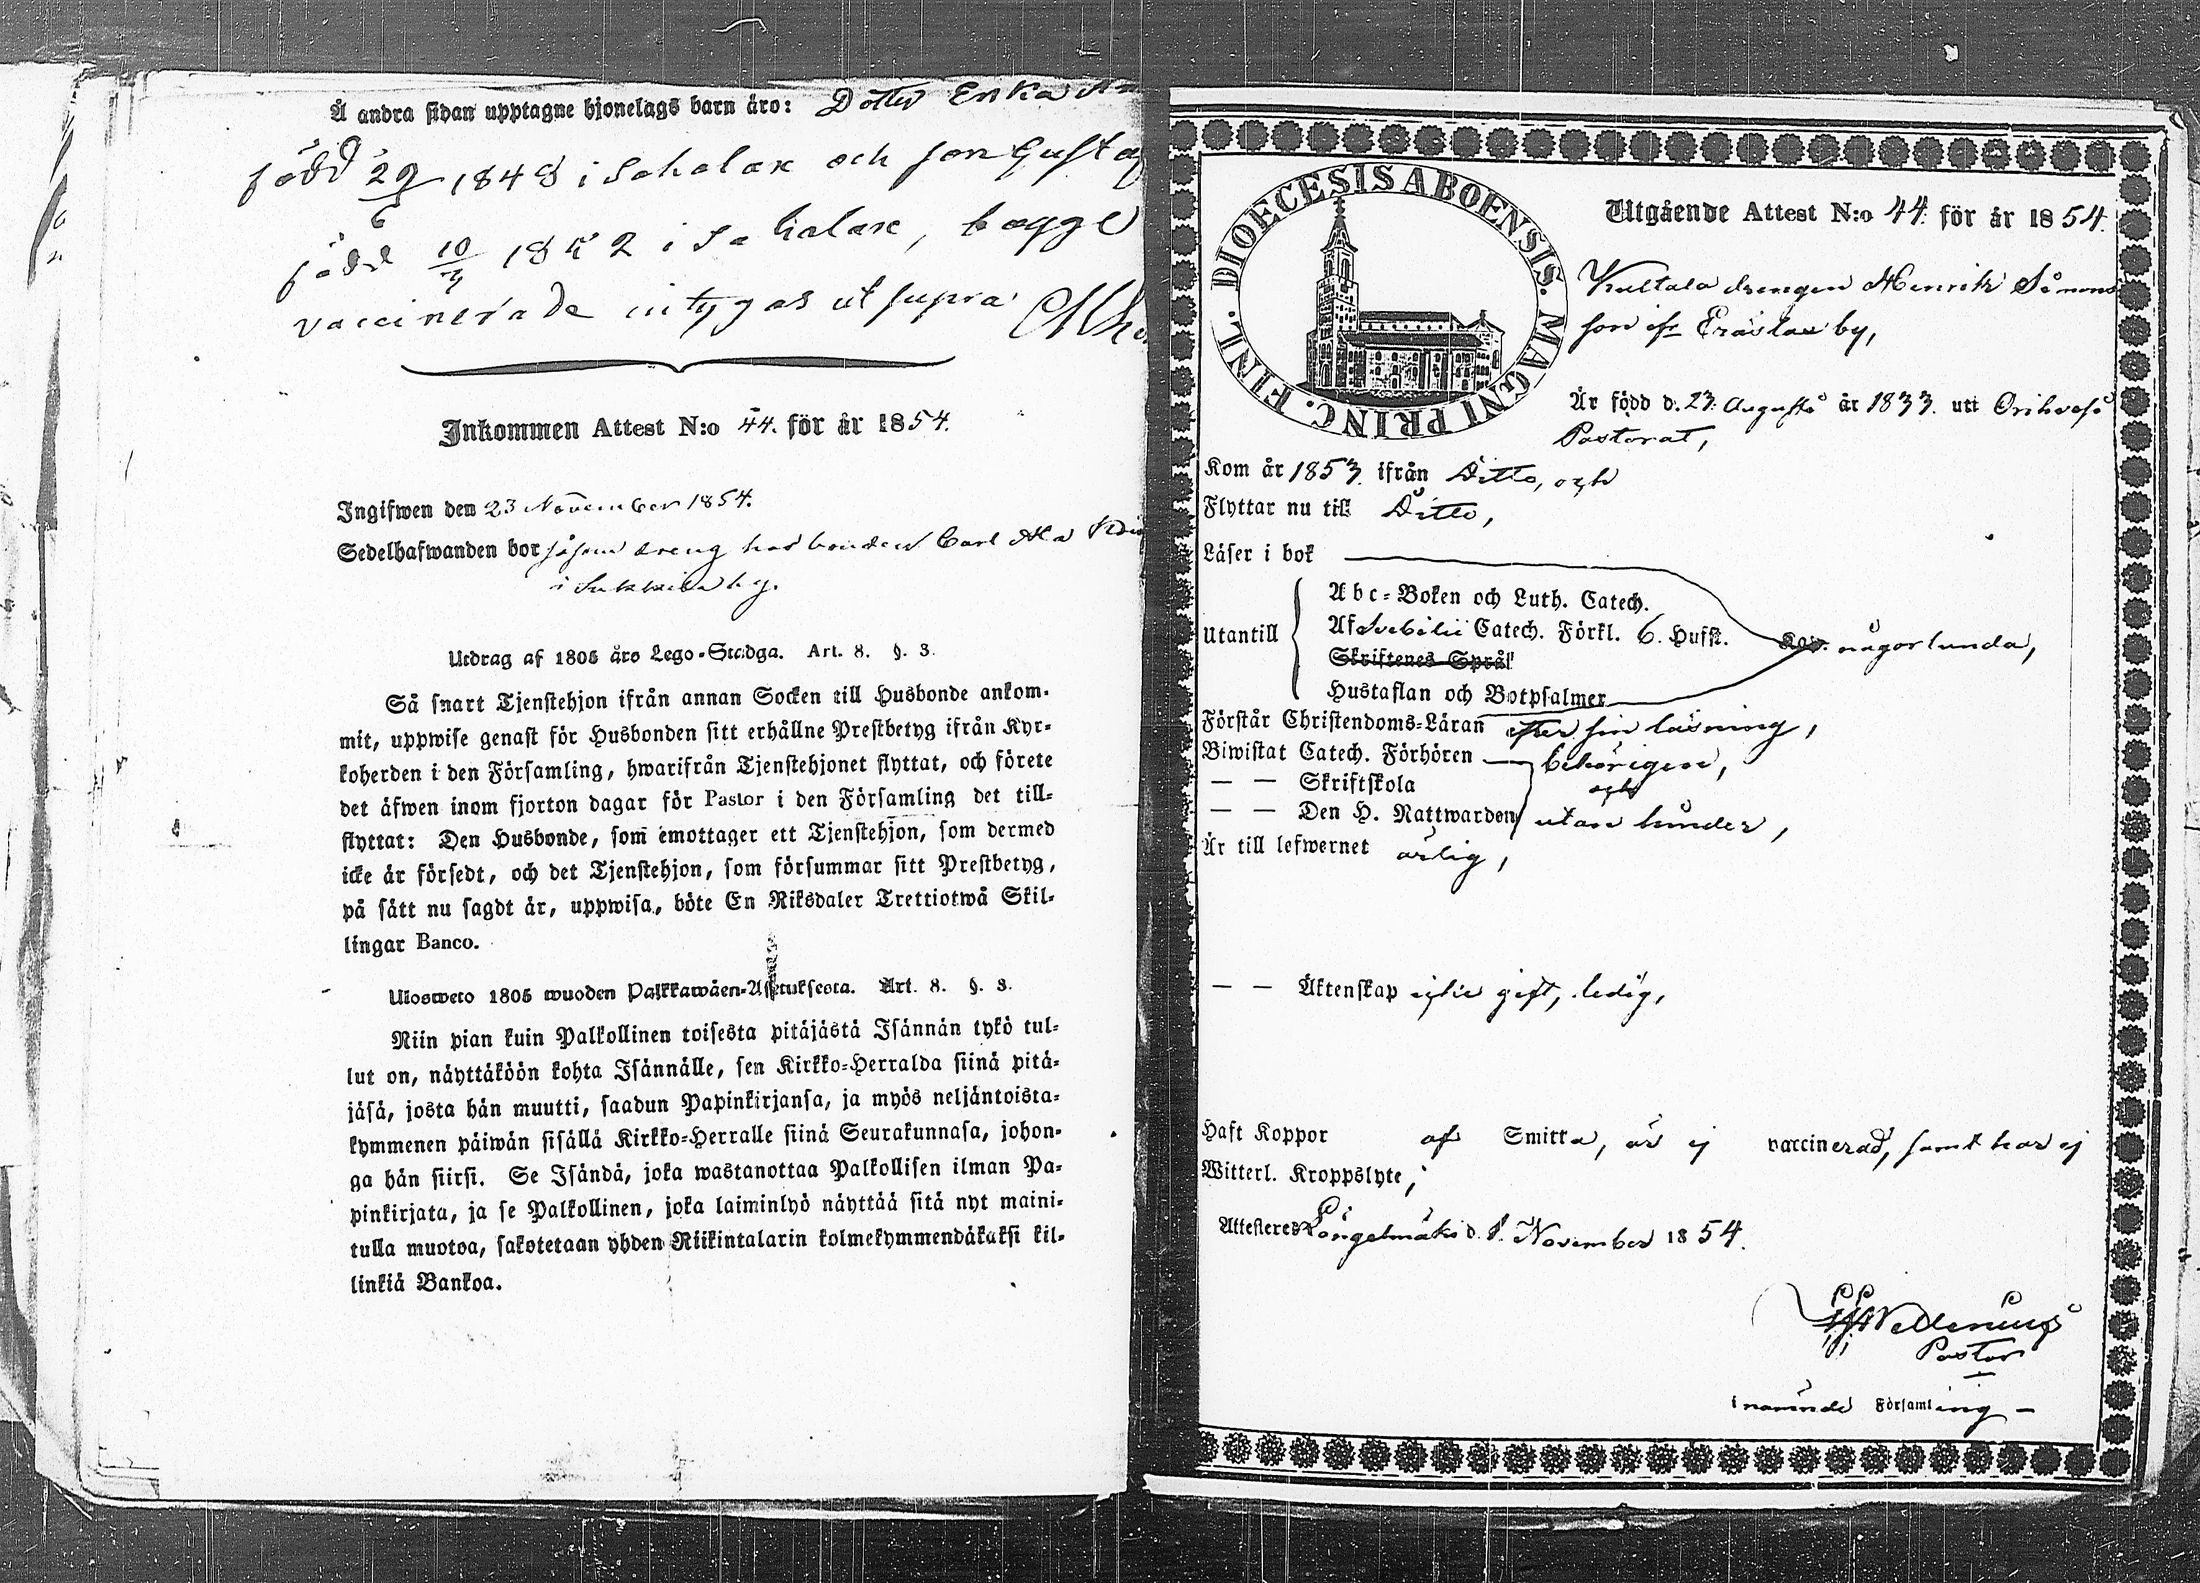 Å andra sidan upptagne hjonelags barn äro: Dotter Erika
född 29/6 1848 i Sahalax och son Gustaf
född 10/3 1852 i Sahalax, bägge
vaccinerade intygas ut supra
Inkommen Attest N:o 44. för år 1854.
Ingifwen den 23 November 1854.
Sedelhafwanden bor såsom dreng hos bonden Carl
i by.
Utdrag af 1805 års Lego-Stadga. Art. 8. §. 3.
Så snart Tjenstehjon ifrån annan Socken till Husbonde ankom-
mit, uppwise genast för Husbonden sitt erhållne Prestbetyg ifrån Kyr-
koherden i den Församling, hwarifrån Tjenstehjonet flyttat, och förete
det äfwen inom fjorton dagar för Pastor i den Församling det till-
flyttat: Den Husbonde, som emottager ett Tjenstehjon, som dermed
icke är försedt, och det Tjenstehjon, som försummar sitt Prestbetyg,
på sätt nu sagdt är, uppwisa, böte En Riksdaler Trettiotwå Skil-
lingar Banco.
Ulosweto 1805 wuoden Palkkawäen-Asetuksesta. Art. 8. §. 3.
Niin pian kuin Palkollinen toisesta pitäjästä Isännän tykö tul-
lut on, näyttäköön kohta Isännälle, sen Kirkko-Herralda siinä pitä-
jäsä, josta hän muutti, saadun Papinkirjansa, ja myös neljäntoista-
kymmenen päiwän sisällä Kirkko-Herralle siinä Seurakunnasa, johon-
ga hän siirsi. Se Isändä, joka wastanottaa Palkollisen ilman Pa-
pinkirjata, ja se Palkollinen, joka laiminlyö näyttää sitä nyt maini-
tulla muotoa, sakotetaan yhden Riikintalarin kolmekymmendäkaksi kil-
linkiä Bankoa.
DIOECESIS ABOENSIS. MAGNI PRINC. FINL.
Utgående Attest N:o 44. för år 1854.
drengen Henrik Simons
son ifr Eräslax by,
Är född d. 23. Augusti år 1833. uti Orihvesi
Pastorat,
Kom år 1853. ifrån Ditto, och
Flyttar nu till Ditto,
Läser i bok
Utantill
Abc-Boken och Luth. Catech.
Af Svebilii Catech. Förkl. 6. Hufst.
Skriftenes Språk
Hustaflan och Botpsalmer
någorlunda,
Förstår Christendoms-Läran efter sin läsning,
Biwistat Catech. Förhören behörigen,
— — Skriftskola och
— — Den H. Nattwarden utan hinder,
Är till lefwernet ärlig,
— — Äktenskap eylie gift, ledig,
Haft Koppor af Smitta, är ej vaccinerad, samt har ej
Witterl. Kroppslyte;
Attesteres Längelmäki d. 8. November 1854.
Wallenius
Pastor
i nämnde Församling —